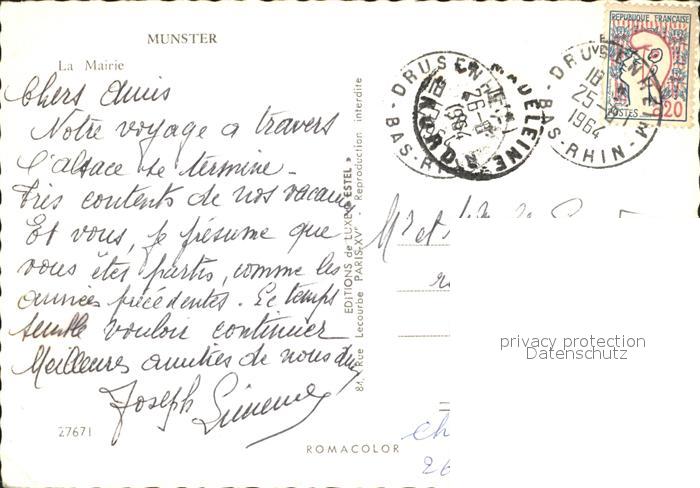 MUNSTER
La Mairie
Chers amis
Notre voyage a travers
l'alsace se termine -
Très contents de nos vacances
Et vous, je présume que
vous êtes partis, comme les
années précédentes. Le temps
semble vouloir continuer
Meilleures amitiés de nous deux
Joseph
27671
ROMACOLOR
EDITIONS de LUXE « ESTEL »
84, Rue Lecourbe PARIS-XVe - Reproduction interdite
- DRUSENHEIM -
BAS-RHIN
MADELEINE
NORD
26
1964
- DRUSENHEIM -
18
25
1964
BAS-RHIN
REPUBLIQUE FRANÇAISE
POSTES
0,20
Mr et
privacy protection
Datenschutz
26